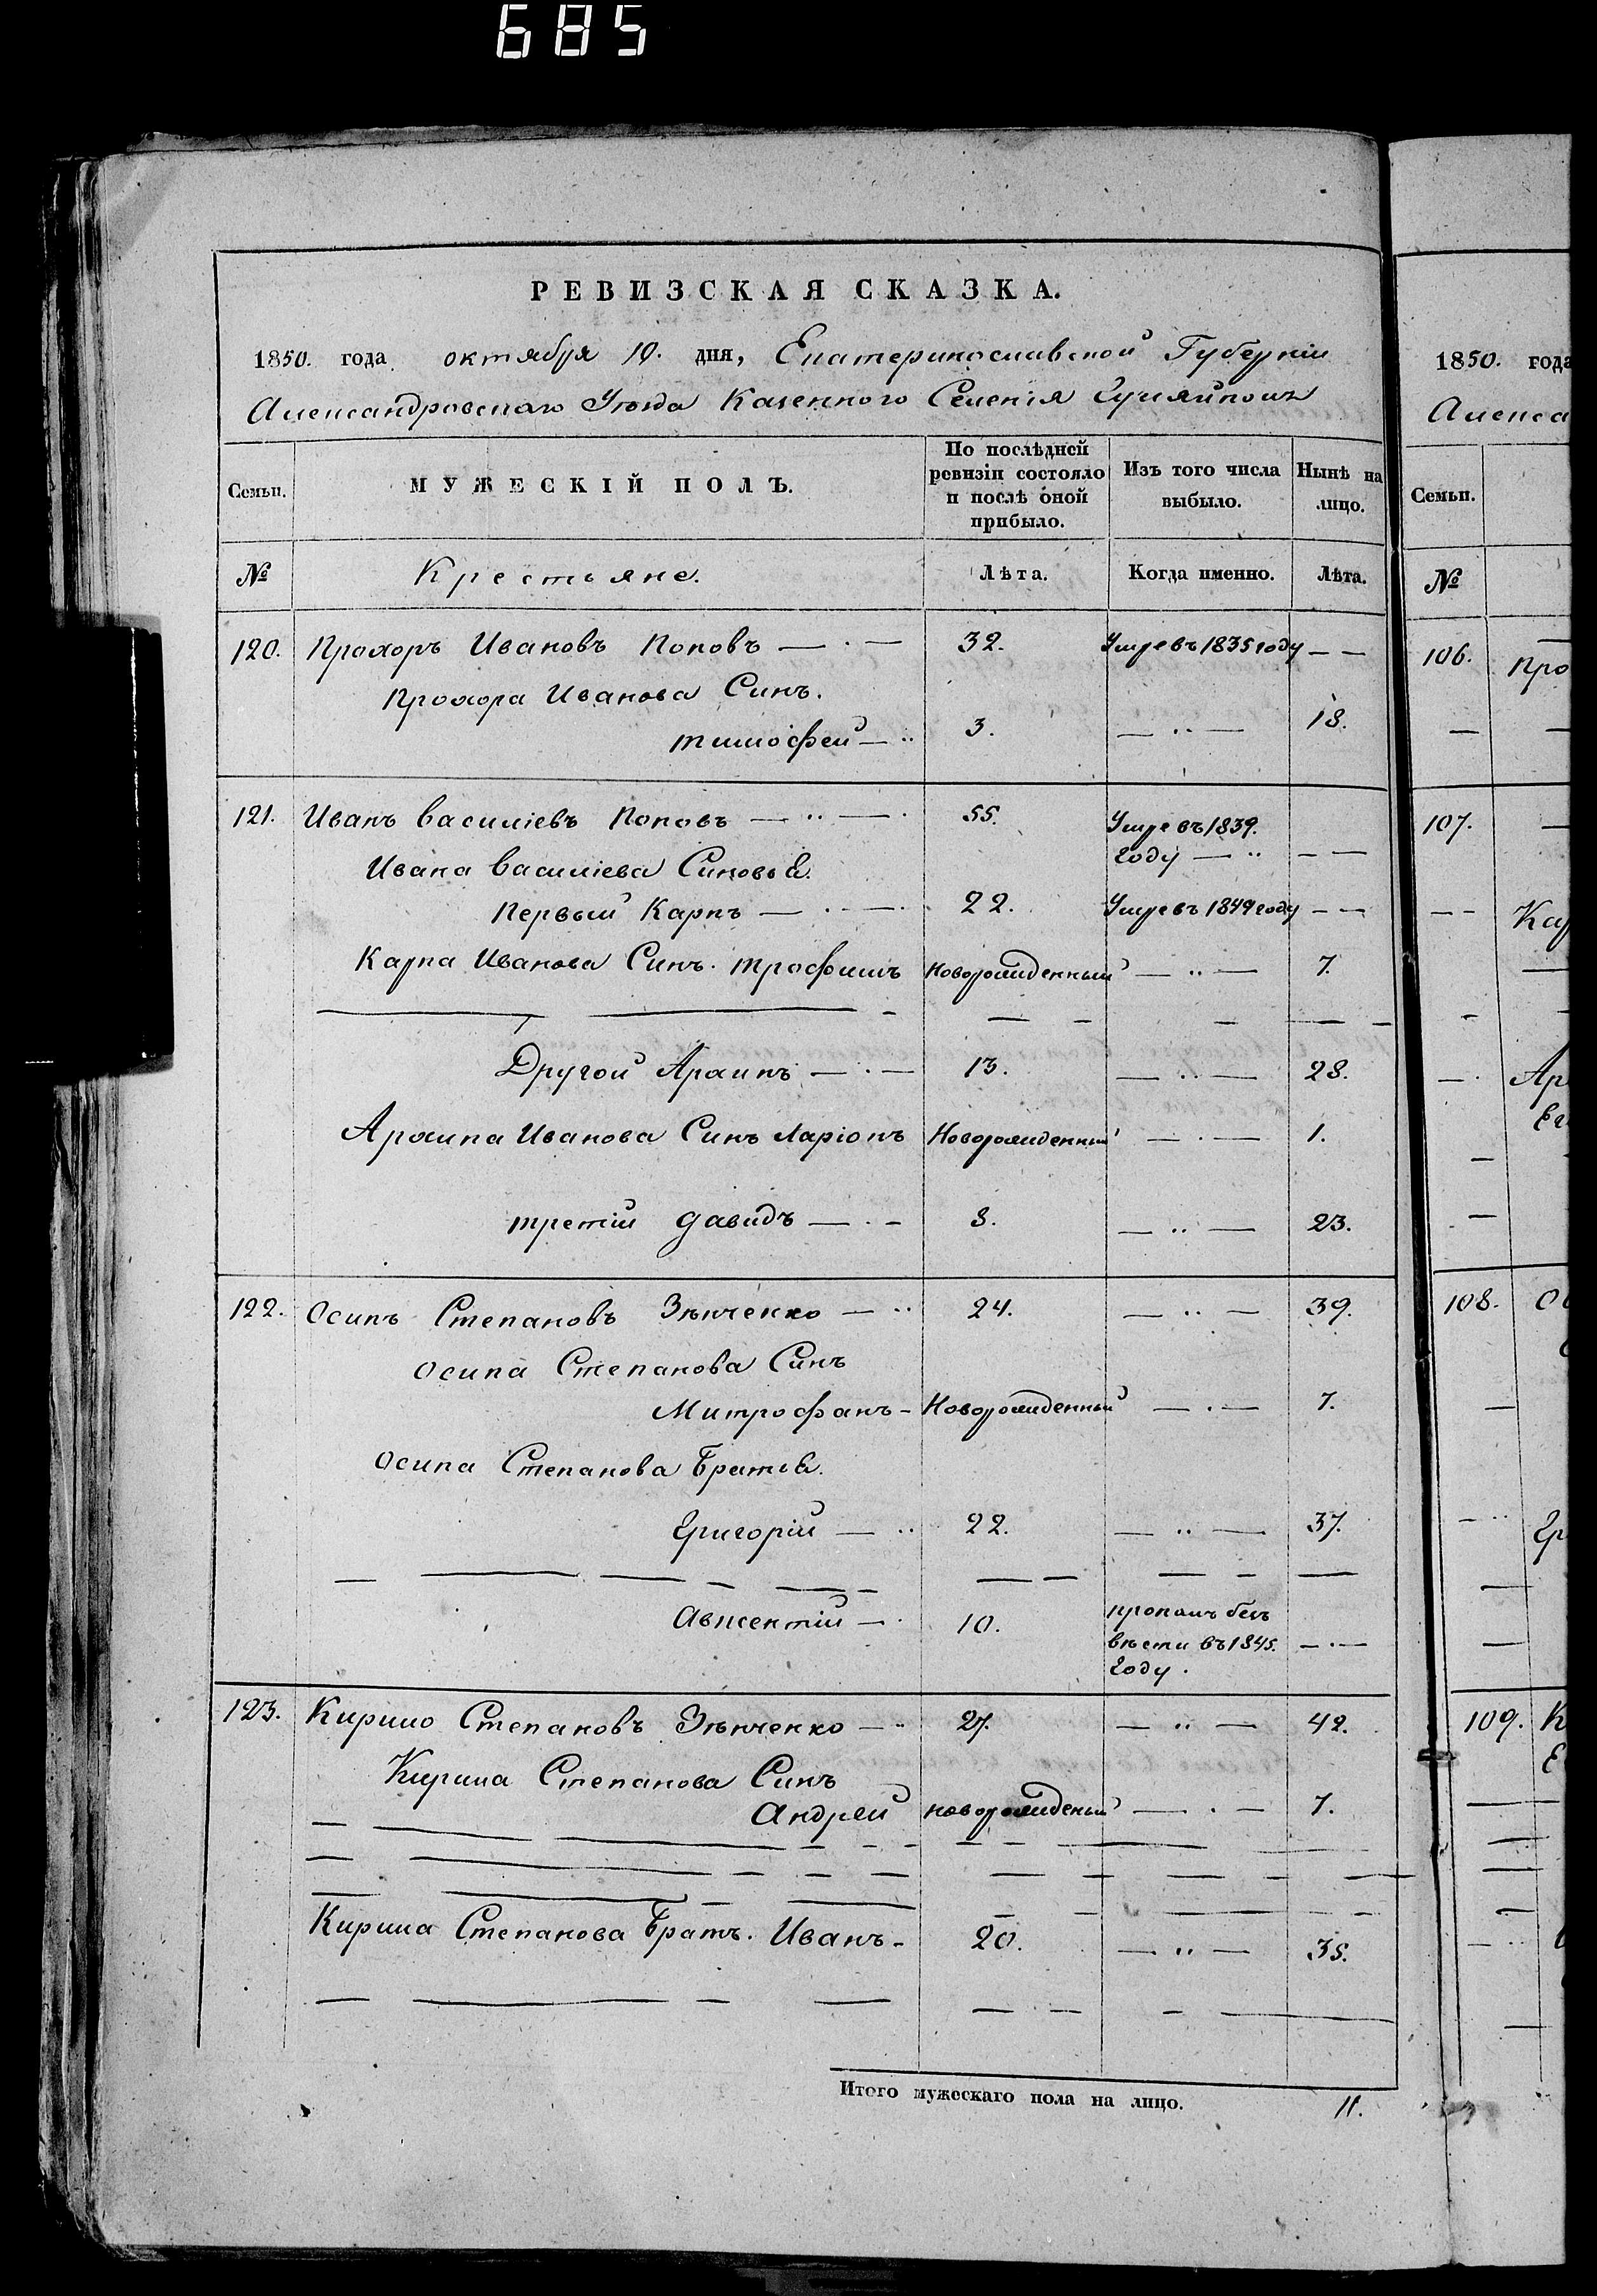 685
РЕВИЗСКАЯ СКАЗКА.
1850. года октября 10. дня, Екатеринославской Губерніи
Александровскаго Уѣзда Казеннаго Селенія Гуляйполя
Семьи. МУЖЕСКІЙ ПОЛЪ. По послѣдней ревизіи состояло и послѣ оной прибыло. Изъ того числа выбыло. Нынѣ на лицо.
№ Крестьяне. Лѣта. Когда именно. Лѣта.
120. Прохоръ Ивановъ Поповъ 32. Умре въ 1835 году
Прохора Иванова Синъ.
тимофей 3. 18.
121. Иванъ Василіевъ Поповъ 55. Умре въ 1839. году
Ивана Василіева Синовья.
Первый Карпъ 22. Умре въ 1849 году
Карпа Иванова Синъ. трофимъ Новорожденный 7.
Другой Архипъ 13. 28.
Архипа Иванова Синъ Ларіонъ Новорожденный 1.
третій Давидъ 8. 23.
122. Осипъ Степановъ Зѣнченко 24. 39.
Осипа Степанова Синъ
Митрофанъ Новорожденный 7.
Осипа Степанова Братья.
Григорій 22. 37.
Авксентій 10. пропалъ безъ вѣсти въ 1845. году.
123. Кирило Степановъ Зѣнченко 27. 42.
Кирила Степанова Синъ
Андрей новорожденый 7.
Кирила Степанова Братъ. Иванъ 20. 35.
Итого мужескаго пола на лицо. 11.
1850. года
Алекса
Семьи.
№
106. Про
107.
Кар
Ар
108.
Гр
109. К